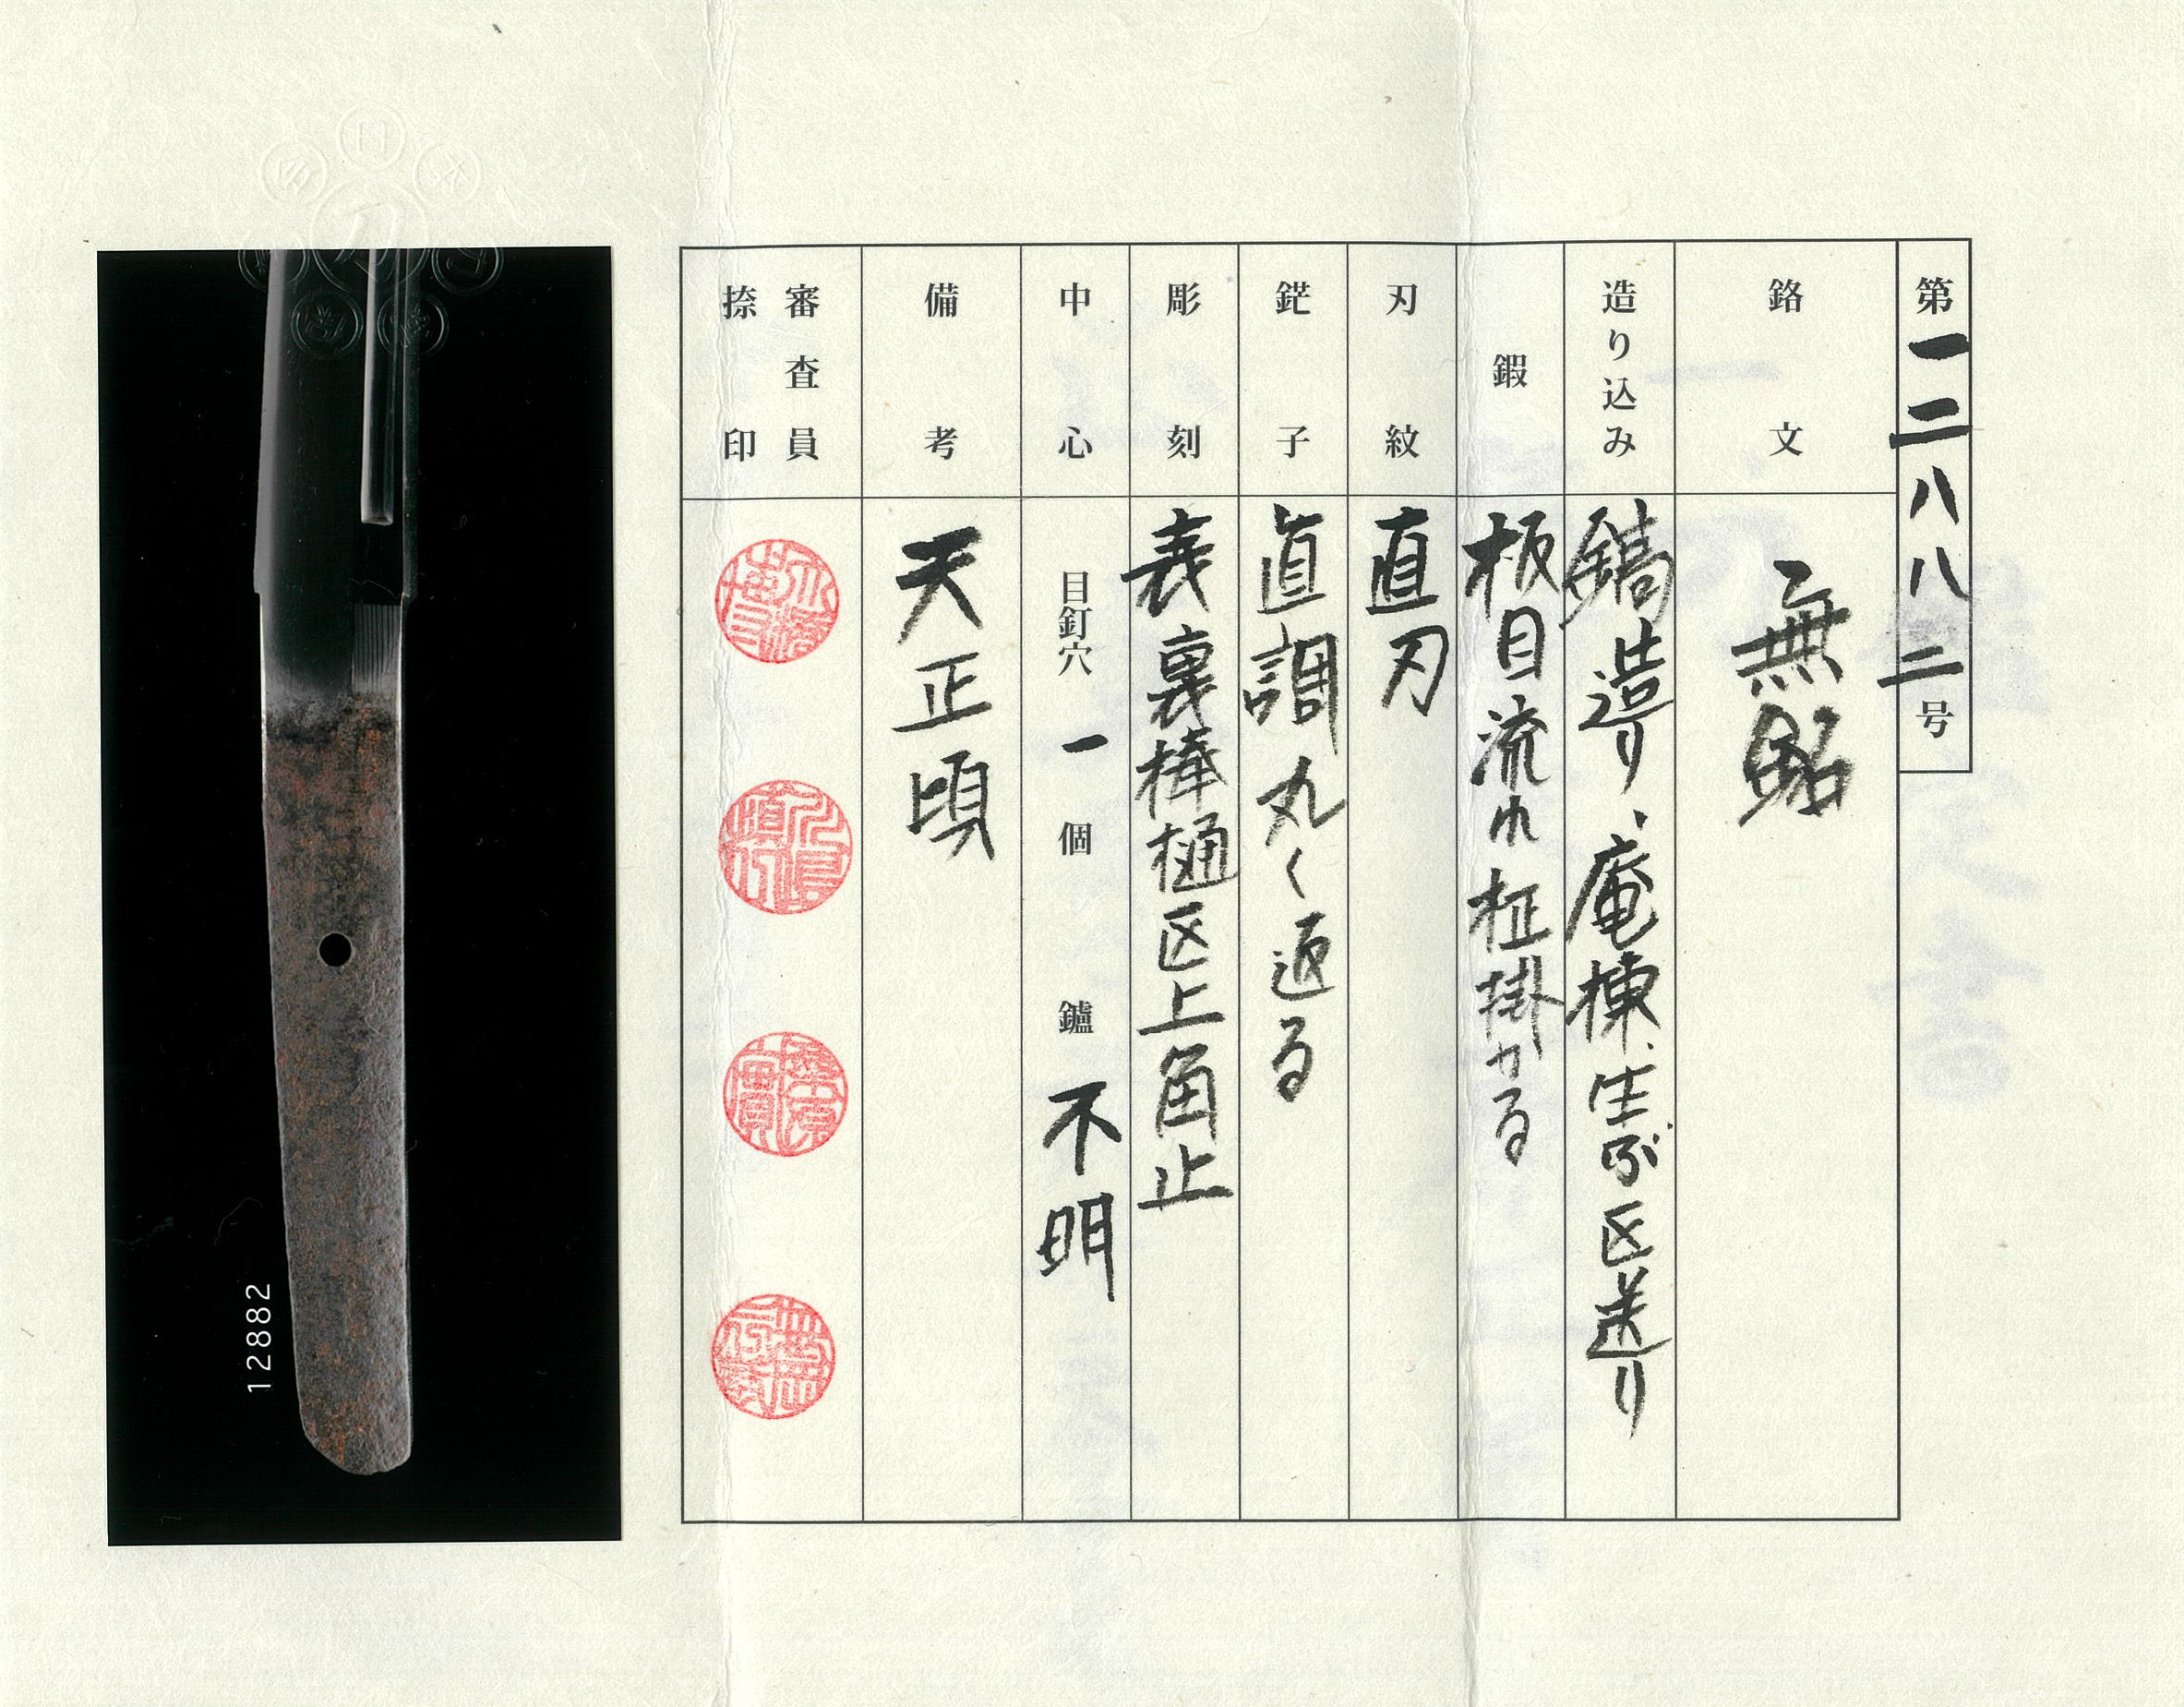 第一二八八二号
銘文 無銘
造り込み 鎬造り、庵棟、生ぶ区送り
鍛 板目流れ柾掛かる
刃紋 直刃
鋩子 直調丸く返る
彫刻 表裏棒樋区上角止
中心 目釘穴 一 個 鑢 不明
備考 天正頃
審査員
捺印
12882